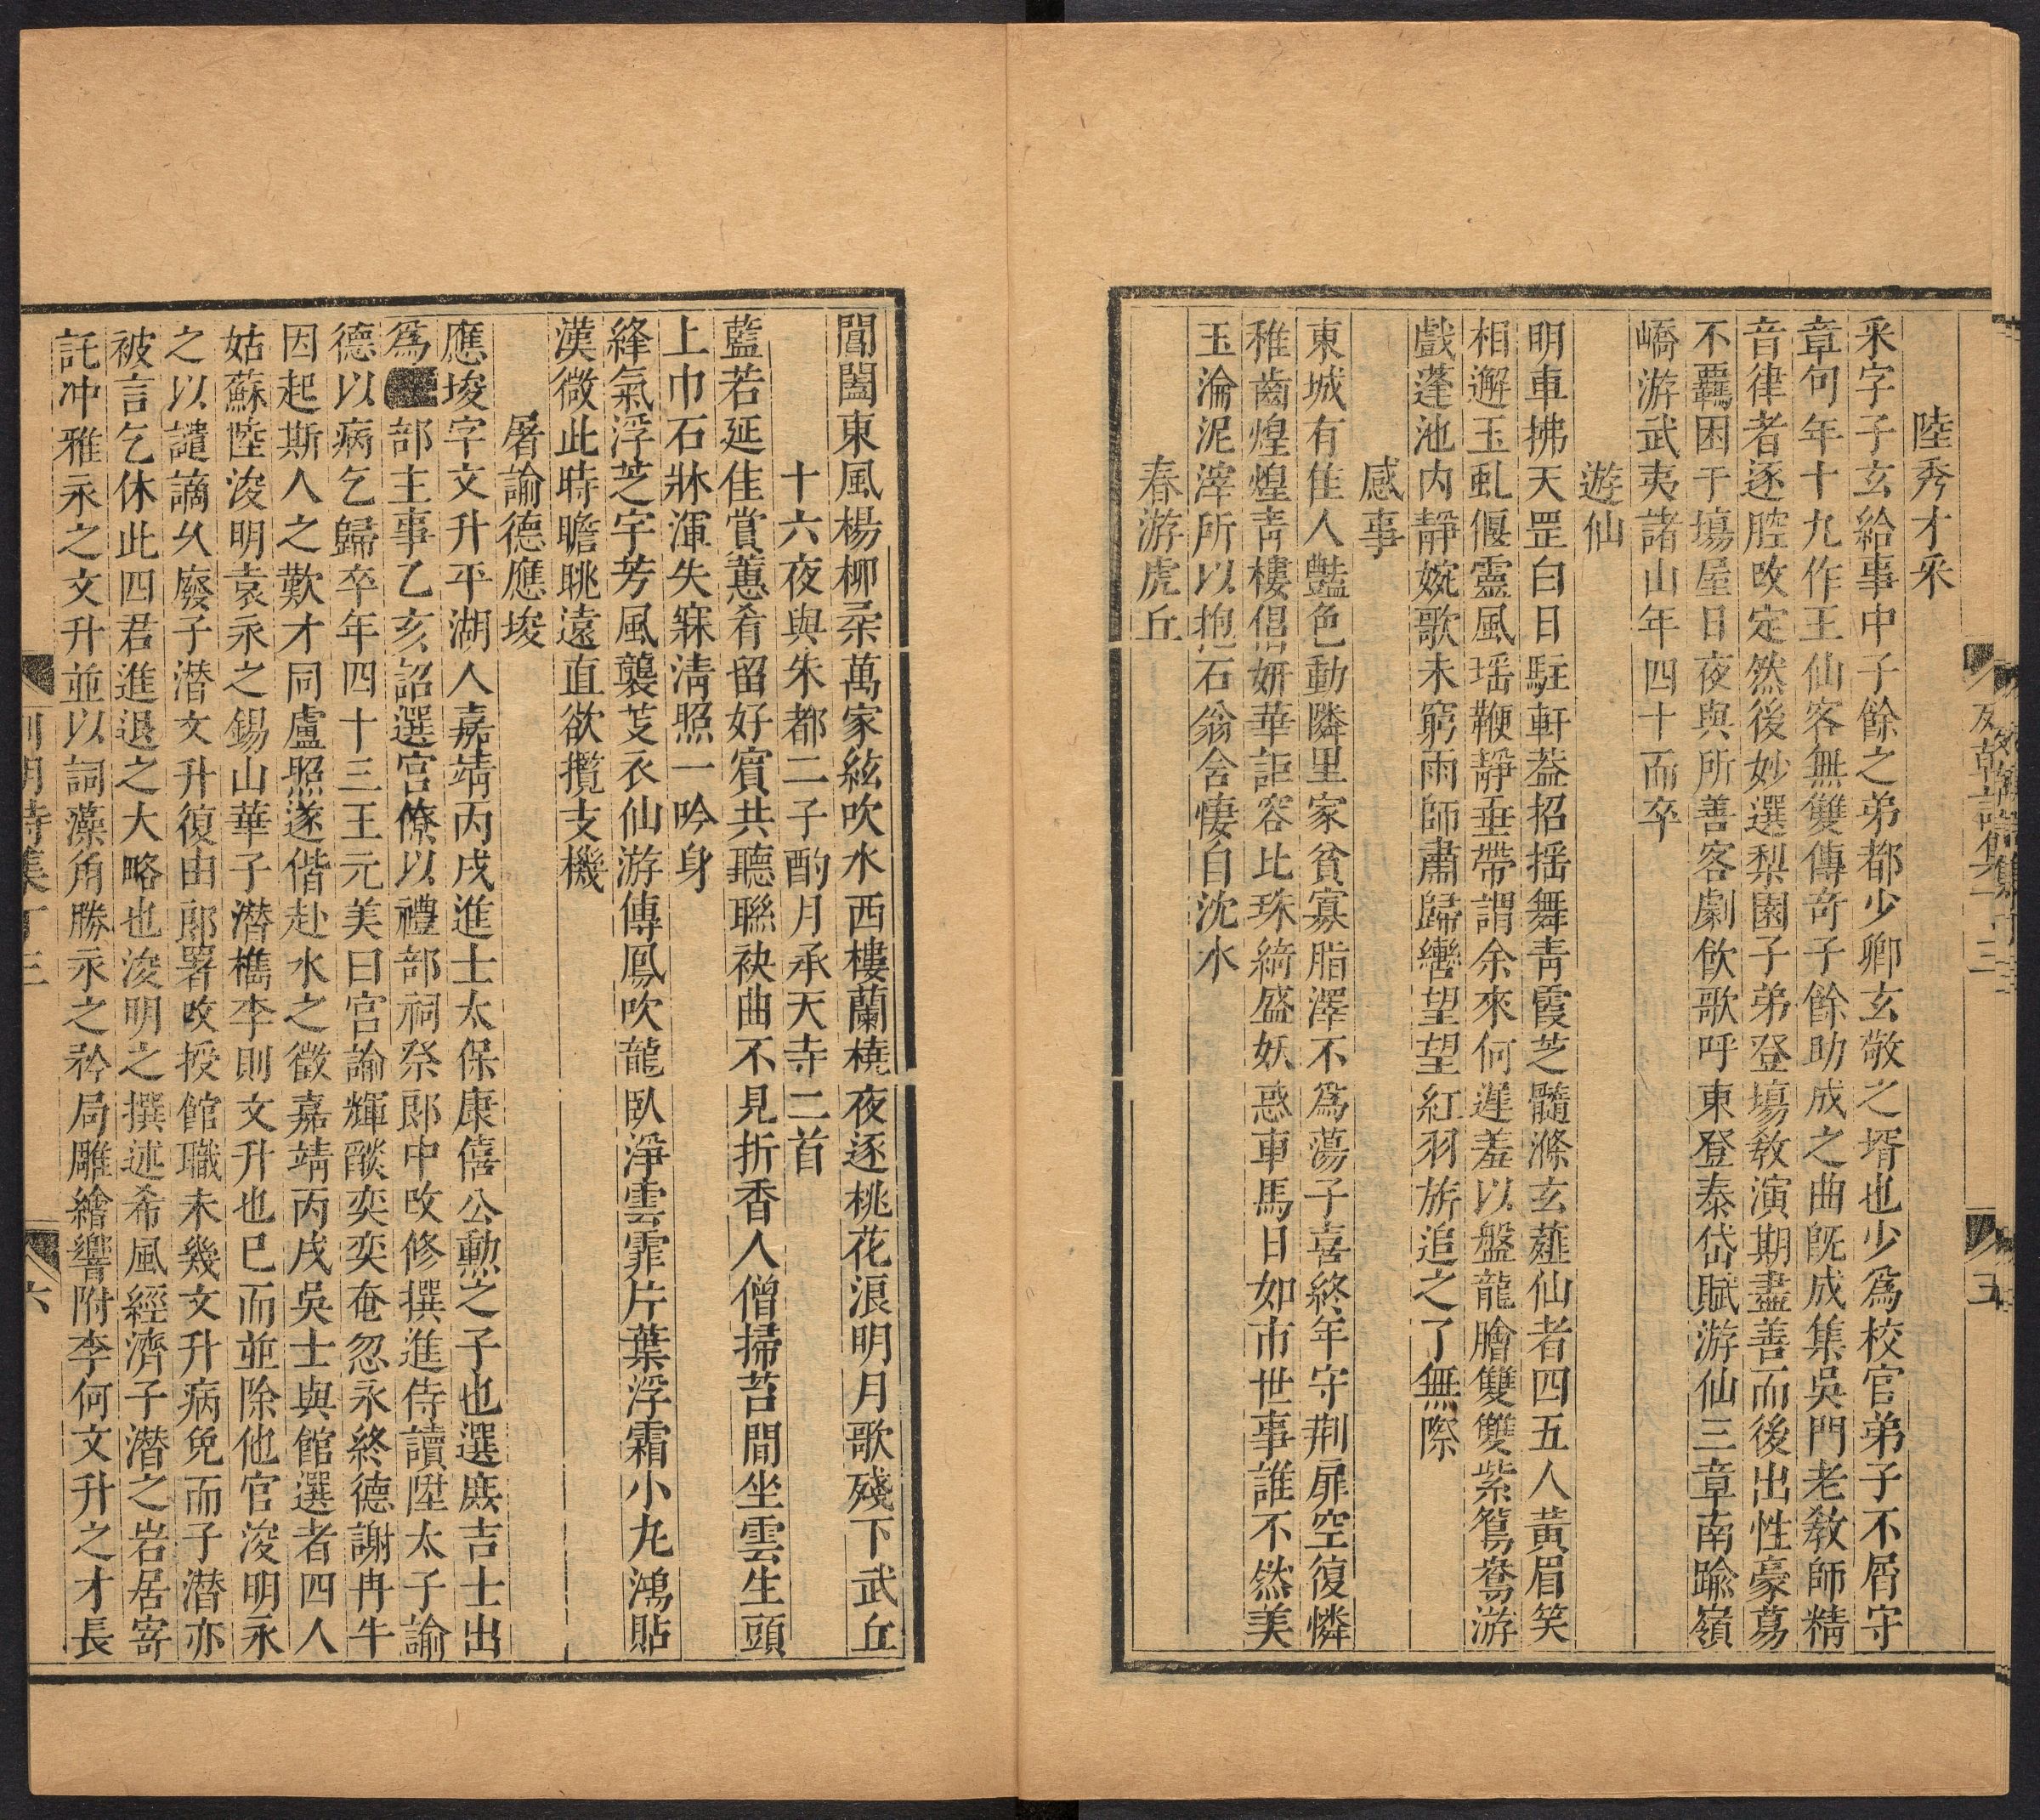 陸秀才采
采字子玄給事中子餘之弟都少卿玄敬之壻也少爲校官弟子不屑守
章句年十九作王仙客無雙傳奇子餘助成之曲旣成集吳門老教師精
音律者逐腔改定然後妙選梨園子弟登塲教演期盡善而後出性豪蕩
不羈困于塲屋日夜與所善客劇飲歌呼東登泰岱賦游仙三章南踰嶺
嶠游武夷諸山年四十而卒
遊仙
明車拂天罡白日駐軒葢招揺舞青霞芝髓滌玄薤仙者四五人黃眉笑
相邂玉虬偃靈風瑶鞭靜垂帶謂余來何遲羞以盤龍膾雙雙紫鴛鴦游
戲蓬池内靜婉歌未窮雨師肅歸轡望望紅羽旂追之了無際
感事
東城有佳人豔色動隣里家貧寡脂澤不爲蕩子喜終年守荆扉空復憐
稚齒煌煌靑樓倡妍華詎容比珠綺盛妖惑車馬日如市世事誰不然美
玉淪泥滓所以抱石翁含悽自沈水
春游虎丘
閶闔東風楊柳柔萬家絃吹水西樓蘭橈夜逐桃花浪明月歌殘下武丘
十六夜與朱都二子酌月承天寺二首
藍若延佳賞蕙肴留好賓共聽聯袂曲不見折香人僧掃苔間坐雲生頭
上巾石牀渾失寐淸照一吟身
絳氣浮芝宇芳風襲芰衣仙游傳鳳吹龍臥淨雲霏片葉浮霜小九鴻貼
漢微此時瞻眺遠直欲攬支機
屠諭德應埈
應埈字文升平湖人嘉靖丙戌進士太保康僖公勳之子也選庶吉士出
爲部主事乙亥詔選宫僚以禮部祠祭郎中改修撰進侍讀陞太子諭
德以病乞歸卒年四十三王元美曰官諭輝燄奕奕奄忽永終德謝冉牛
因起斯人之歎才同盧照遂偕赴水之徵嘉靖丙戌吳士與館選者四人
姑蘇陸浚明袁永之錫山華子潛檇李則文升也已而並除他官浚明永
之以譴謫乆廢子潛文升復由郎署改授館職未幾文升病免而子潛亦
被言乞休此四君進退之大略也浚明之撰述希風經濟子潛之岩居寄
託冲雅永之文升並以詞藻角勝永之矜局雕繪響附李何文升之才長
列朝詩集丁三
六